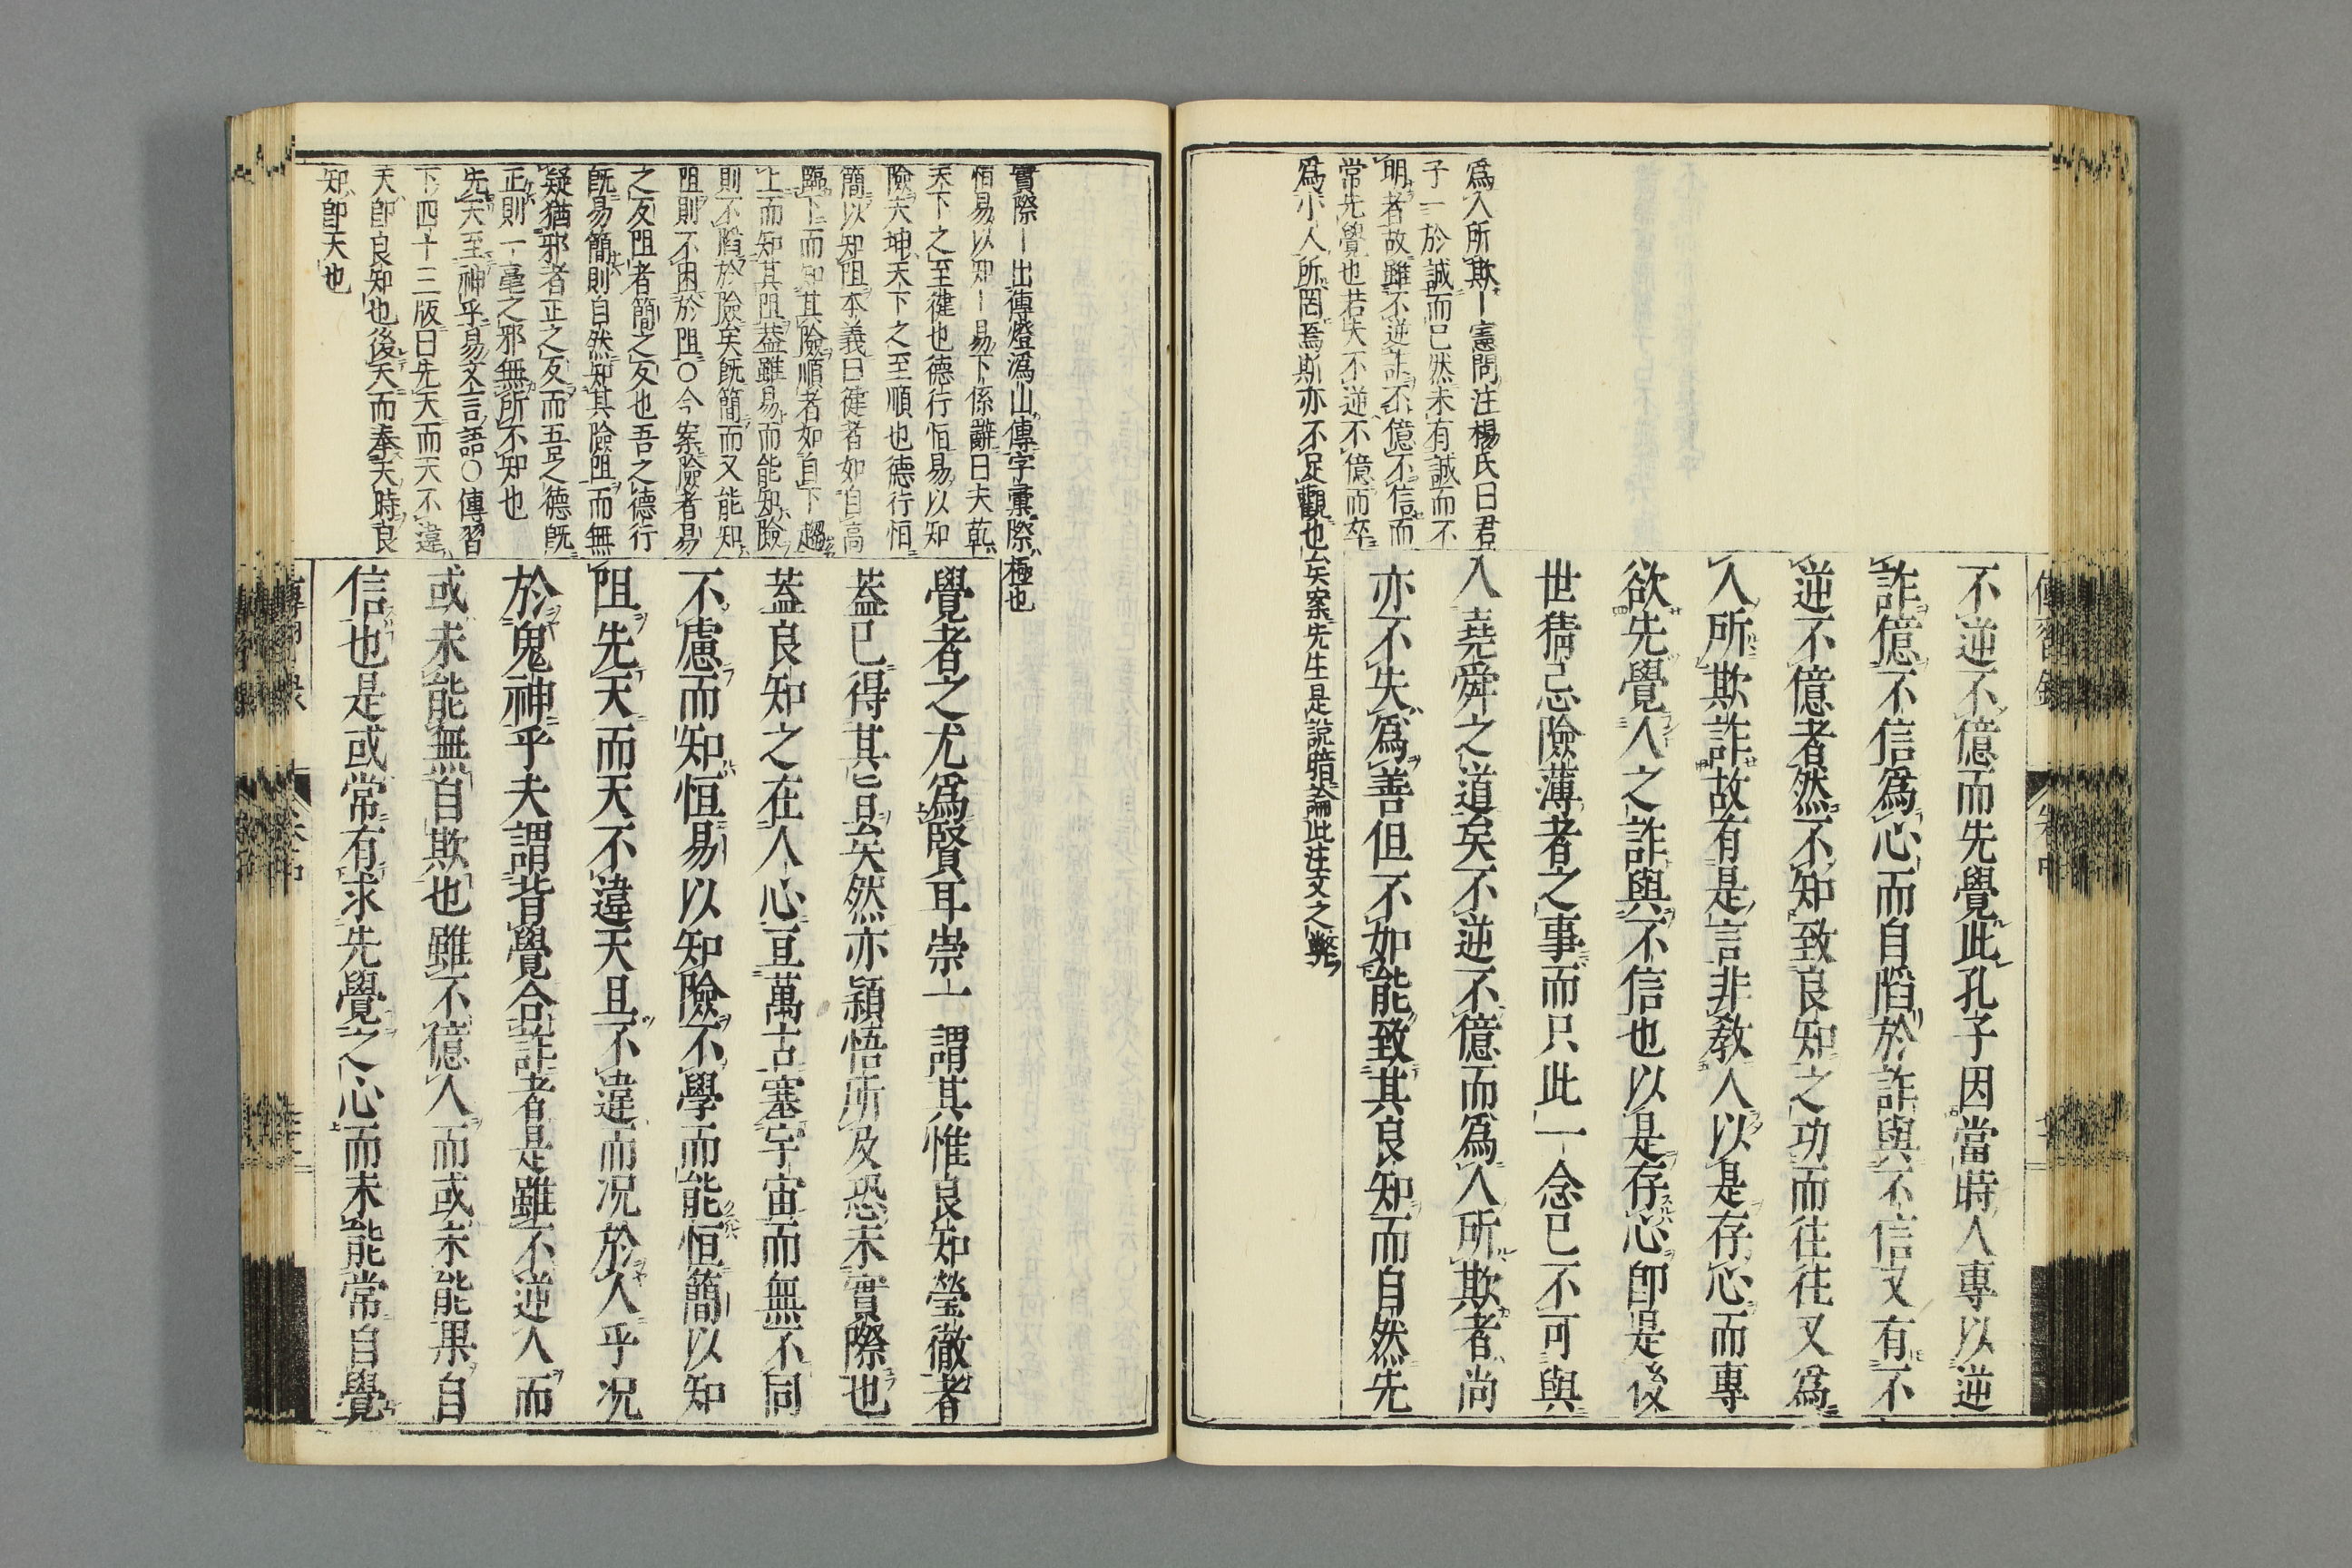 爲人所欺ー憲問注楊氏曰君
子一於誠而已然未有誠而不
明者故雖不逆詐不億不信而
常先覺也若夫不逆不億而卒
爲小人所罔焉斯亦不足觀也矣案先生是說暗論此注文之弊
傳習錄
卷中
不逆不億而先覺此孔子因當時人專以逆
詐億不信爲心而自陷於詐與不信又有不
逆不億者然不知致良知之功而往往又爲
人所欺詐故有是言非教人以是存心而專
欲先覺人之詐與不信也以是存心卽是後
世猜忌險薄者之事而只此一念已不可與
入堯舜之道矣不逆不億而爲人所欺者尚
亦不失爲善但不如能致其良知而自然先
實際ー出傳燈溈山傳字彙際極也
恒易以知ー易下係辭曰夫乾
天下之至徤也德行恒易以知
險夫坤天下之至順也德行恒
簡以知阻本義曰徤者如自高
臨下而知其險順者如自下趨
上而知其阻葢雖易而能知險
則不陷於險矣旣簡而又能知
阻則不困於阻○今案險者易
之反阻者簡之反也吾之德行
旣易簡則自然知其險阻而無
疑猶邪者正之反而吾之德旣
正則一毫之邪無所不知也
先天至神乎易文言語○傳習
下四十三版曰先天而天不違
天卽良知也後天而奉天時良
知卽天也
覺者之尤爲賢耳崇一謂其惟良知瑩徹者
葢已得其旨矣然亦頴悟所及恐未實際也
葢良知之在人心亘萬古塞宇宙而無不同
不慮而知恒易以知險不學而能恒簡以知
阻先天而天不違天且不違而况於人乎况
於鬼神乎夫謂背覺合詐者是雖不逆人而
或未能無自欺也雖不億人而或未能果自
信也是或常有求先覺之心而未能常自覺